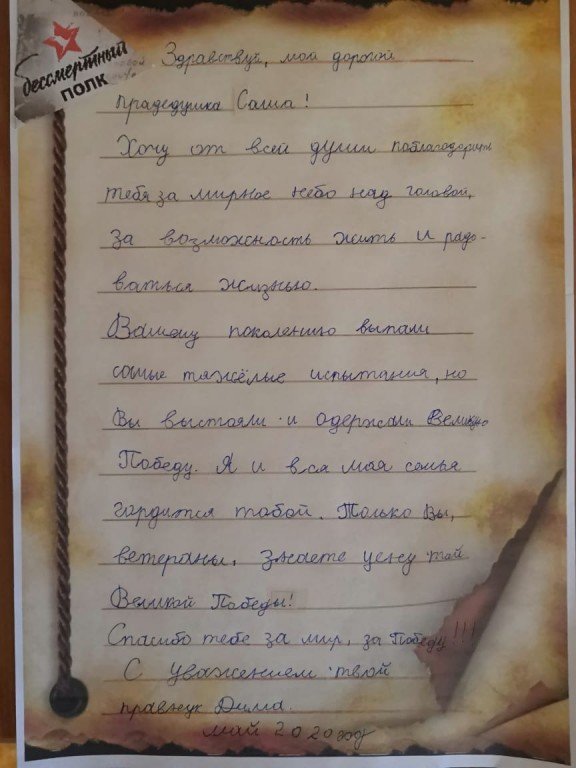 бессмертный
ПОЛК
Здравствуй, мой дорогой
прадедушка Саша!
Хочу от всей души поблагодарить
тебя за мирное небо над головой,
за возможность жить и радо-
ваться жизнью.
Вашему поколению выпали
самые тяжёлые испытания, но
Вы выстояли и одержали Великую
Победу. Я и вся моя семья
гордится тобой. Только Вы,
ветераны, знаете цену той
Великой Победы!
Спасибо тебе за мир, за Победу!!!
С уважением твой
правнук Дима.
май 2020 год